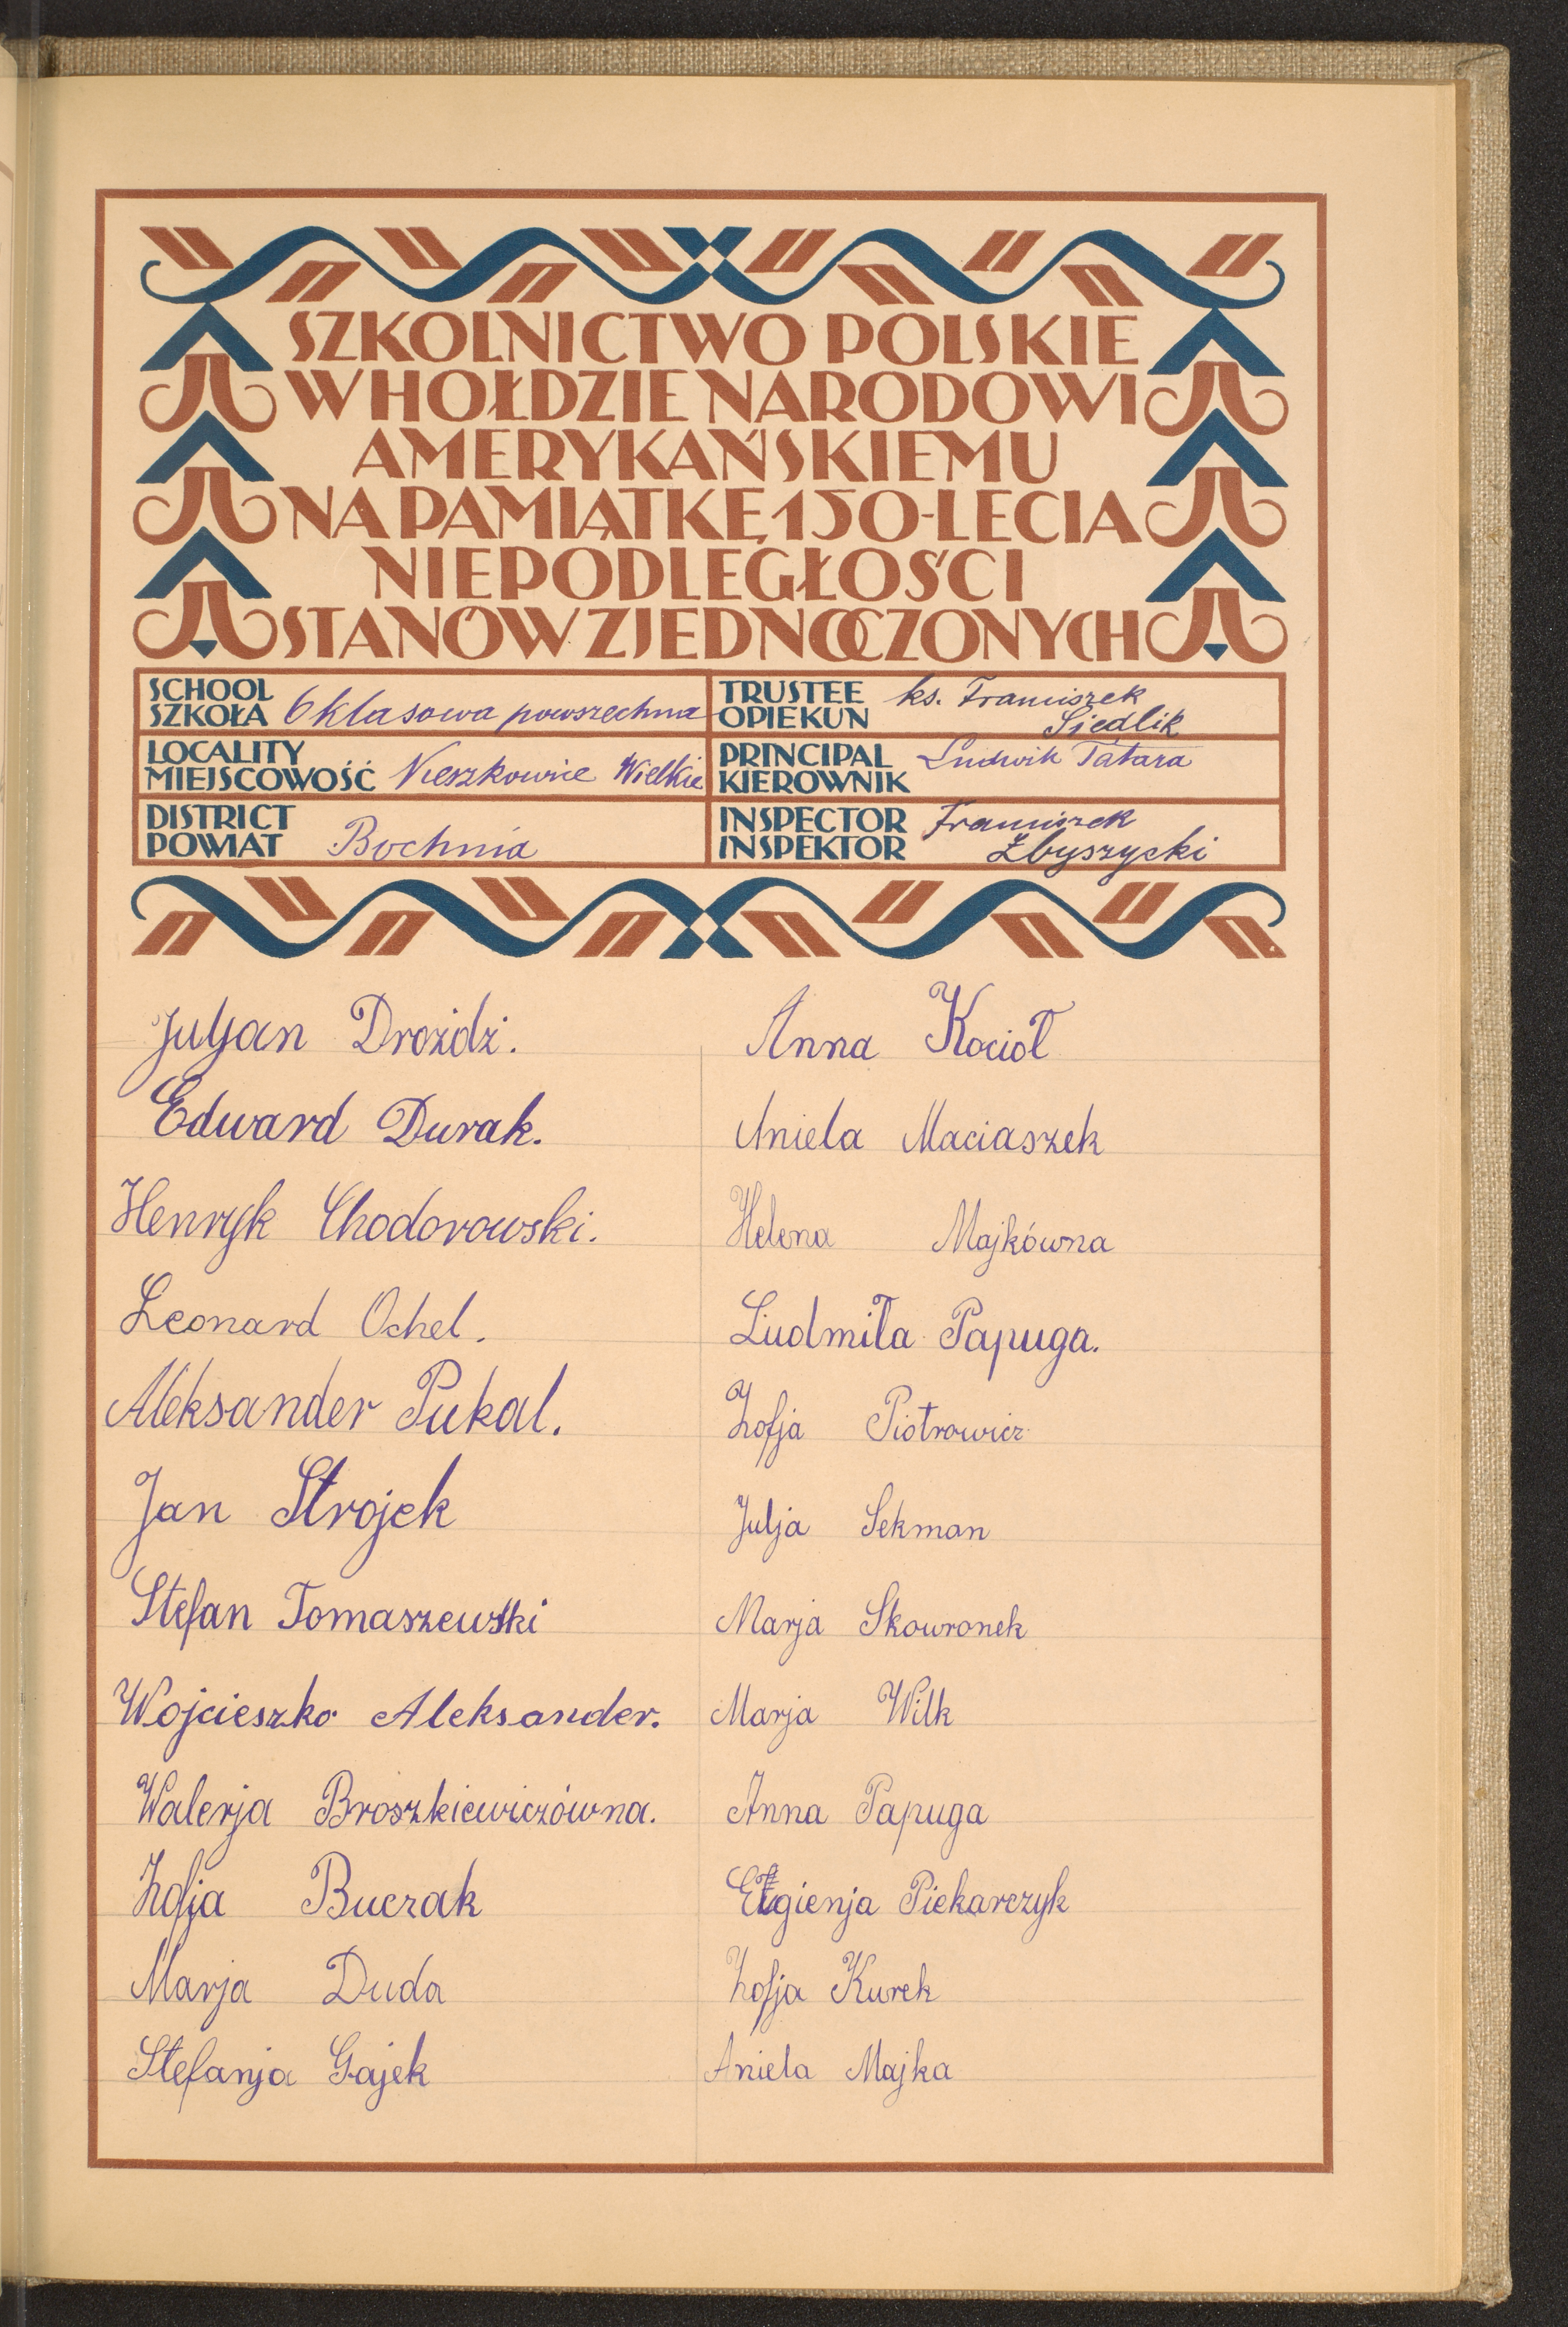 SZKOLNICTWO POLSKIE
W HOŁDZIE NARODOWI
AMERYKAŃSKIEMU
NA PAMIĄTKĘ 150-LECIA
NIEPODLEGŁOŚCI
STANÓW ZJEDNOCZONYCH
SCHOOL
SZKOŁA 6 klasowa powszechna
TRUSTEE
OPIEKUN ks. Franciszek
Siedlik
LOCALITY
MIEJSCOWOŚĆ Nieszkowice Wielkie
PRINCIPAL
KIEROWNIK Ludwik Tatara
DISTRICT
POWIAT Bochnia
INSPECTOR
INSPEKTOR Franciszek
Zbyszycki
Juljan Drożdż.
Edward Durak.
Henryk Chodorowski.
Leonard Ochel.
Aleksander Pukal.
Jan Strojek
Stefan Tomaszewski
Wojcieszko Aleksander.
Walerja Broszkiewiczówna.
Zofja Buczak
Marja Duda
Stefanja Gajek
Anna Kocioł
Aniela Maciaszek
Helena Majkówna
Ludmiła Papuga.
Zofja Piotrowicz
Julja Sekman
Marja Skowronek
Marja Wilk
Anna Papuga
Eugienja Piekarczyk
Zofja Kurek
Aniela Majka